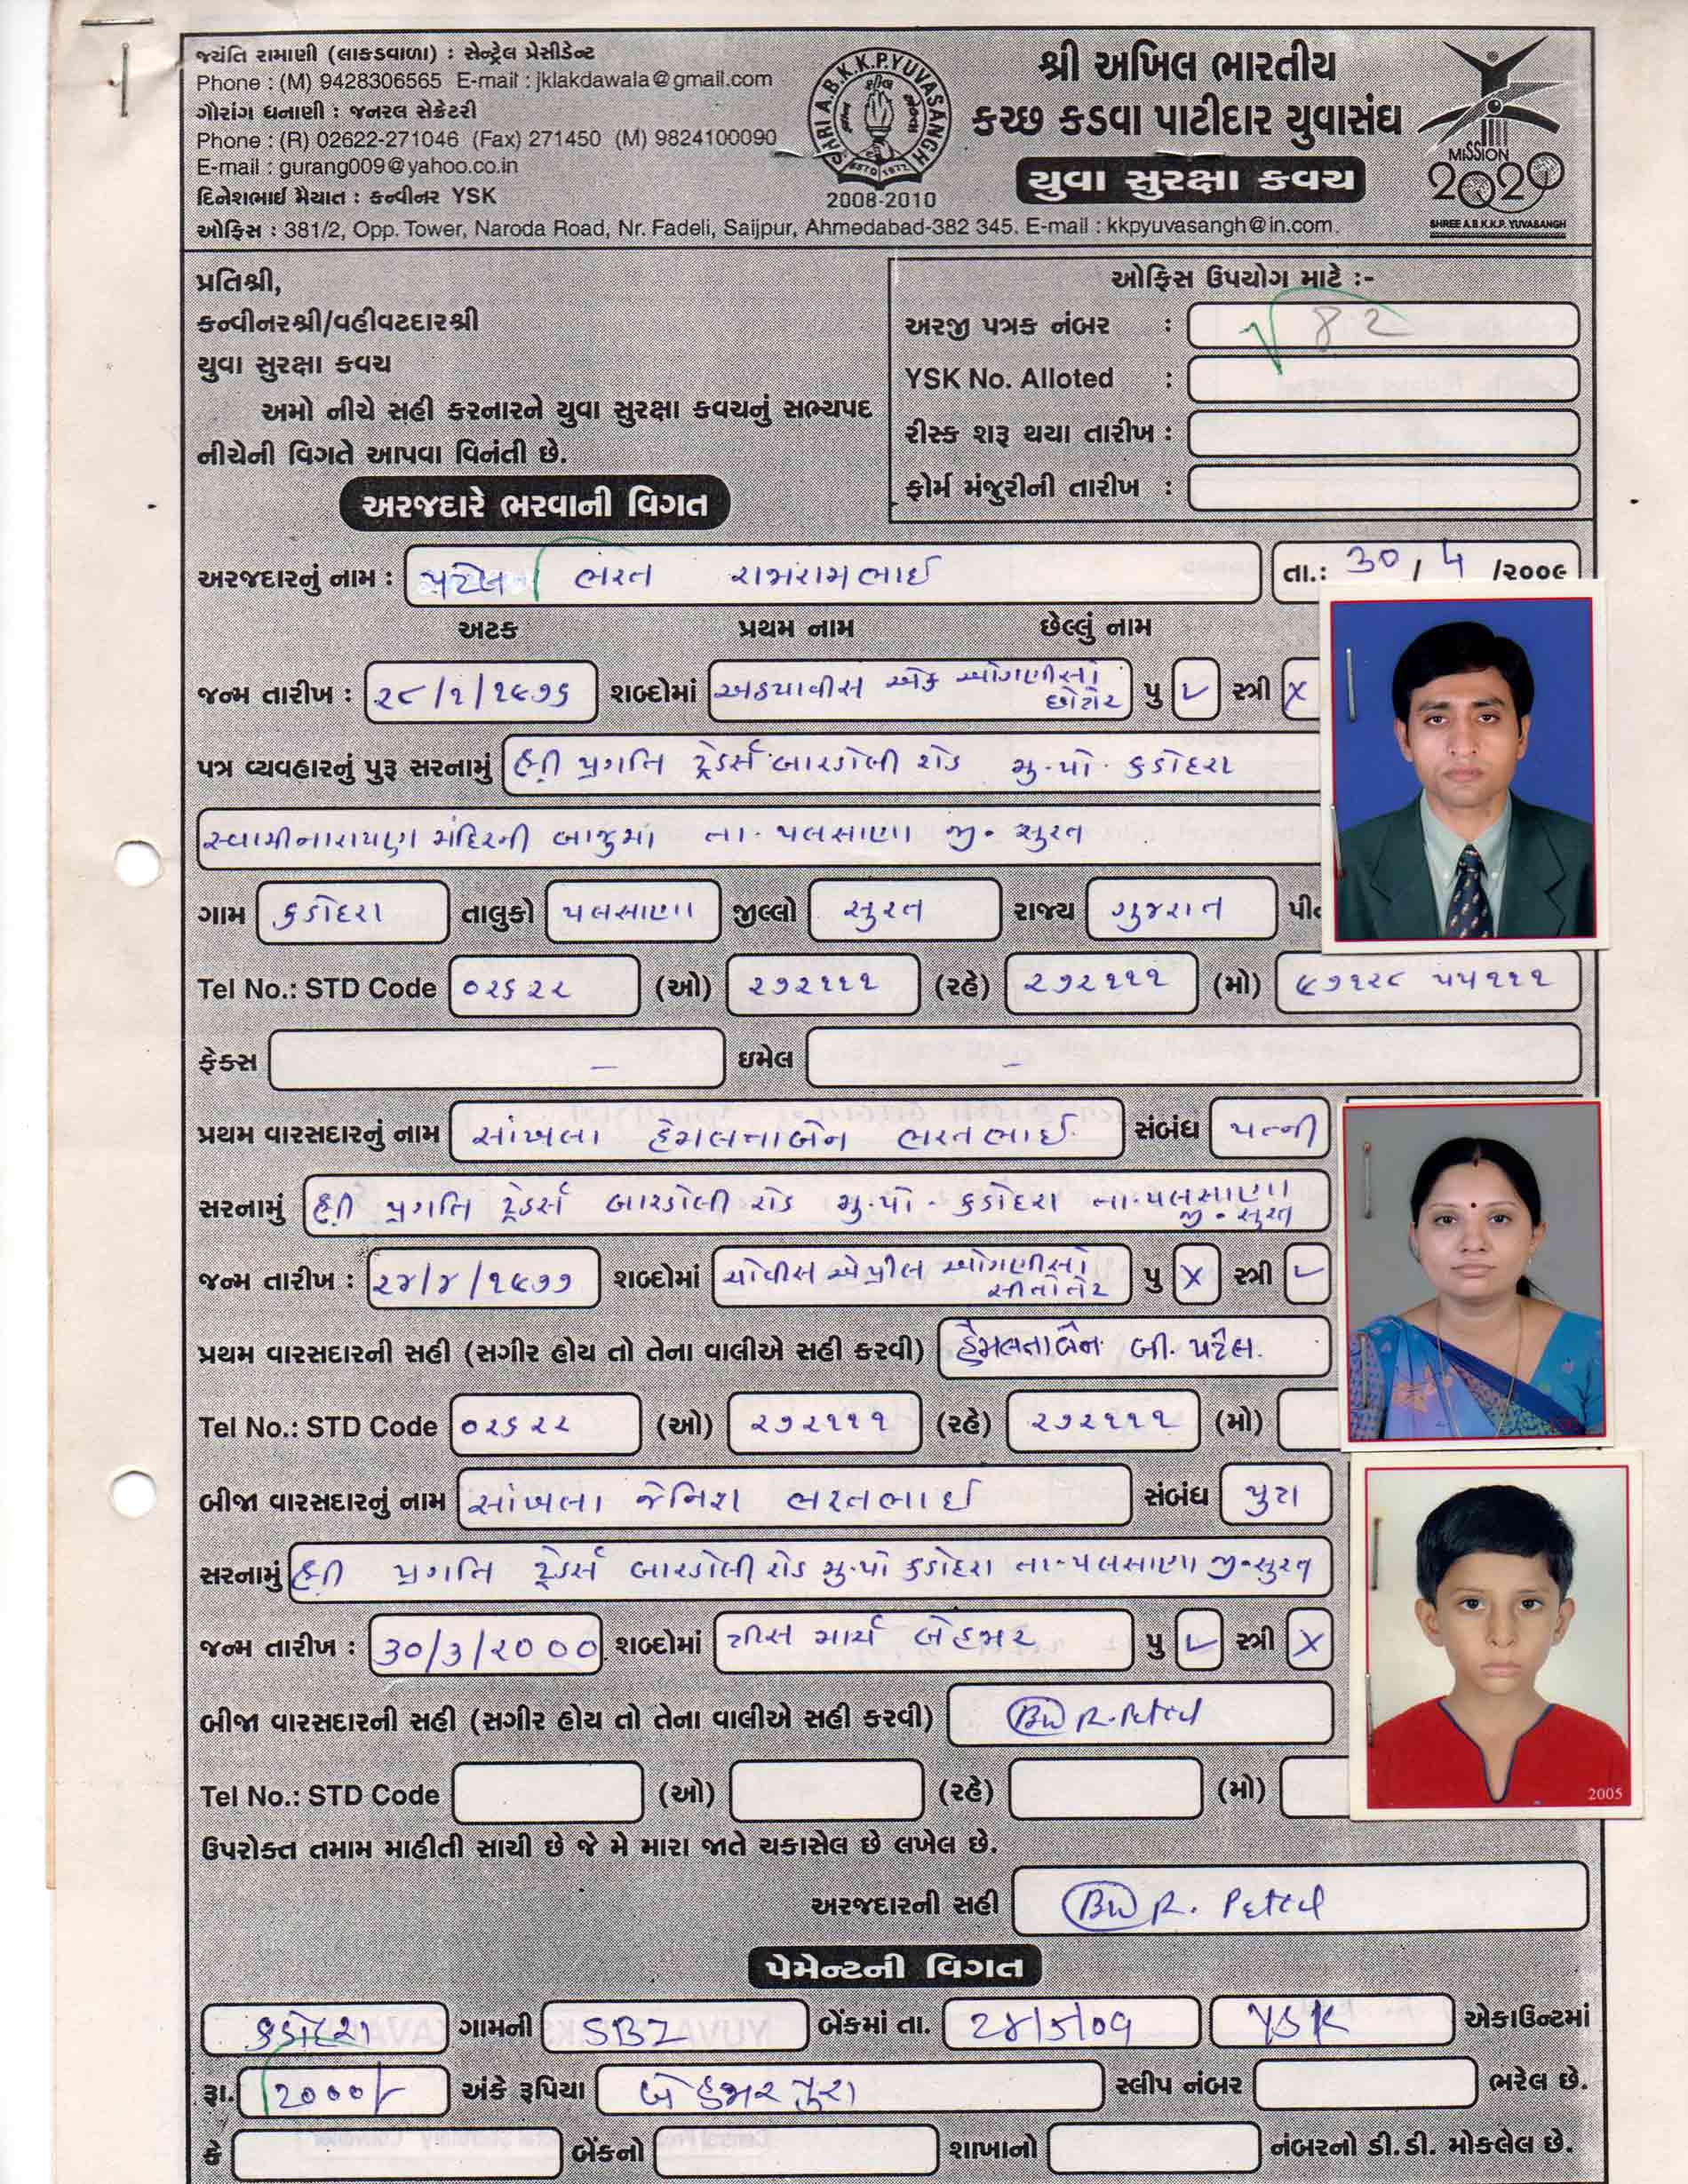 જયંતિ રામાણી (લાકડવાળા) : સેન્ટ્રેલ પ્રેસીડેન્ટ
Phone : (M) 9428306565 E-mail : jklakdawala@gmail.com
ગૌરાંગ ધનાણી : જનરલ સેક્રેટરી
Phone : (R) 02622-271046 (Fax) 271450 (M) 9824100090
E-mail : gurang009@yahoo.co.in
દિનેશભાઈ મૈયાત : કન્વીનર YSK
ઓફિસ : 381/2, Opp. Tower, Naroda Road, Nr. Fadeli, Saijpur, Ahmedabad-382 345. E-mail : kkpyuvasangh@in.com.
SHRI A.B.K.K.P. YUVASANGH
ESTD 1972
2008-2010
શ્રી અખિલ ભારતીય
કચ્છ કડવા પાટીદાર યુવાસંઘ
યુવા સુરક્ષા કવચ
MISSION
2020
SHREE A.B.K.K.P. YUVASANGH
પ્રતિશ્રી,
કન્વીનરશ્રી/વહીવટદારશ્રી
યુવા સુરક્ષા કવચ
અમો નીચે સહી કરનારને યુવા સુરક્ષા કવચનું સભ્યપદ
નીચેની વિગતે આપવા વિનંતી છે.
ઓફિસ ઉપયોગ માટે :-
અરજી પત્રક નંબર : 82
YSK No. Alloted :
રીસ્ક શરૂ થયા તારીખ :
ફોર્મ મંજુરીની તારીખ :
અરજદારે ભરવાની વિગત
અરજદારનું નામ : પટેલ ભરત રામરામભાઈ તા.: 30 / ૫ /૨૦૦૯
અટક પ્રથમ નામ છેલ્લું નામ
જન્મ તારીખ : ૨૮/૧/૧૯૭૬ શબ્દોમાં અઠયાવીસ એક ઓગણીસો છોતેર પુ ✓ સ્ત્રી X
પત્ર વ્યવહારનું પુરૂ સરનામું શ્રી પ્રગતિ ટ્રેડર્સ બારડોલી રોડ મુ.પો. કડોદરા
સ્વામીનારાયણ મંદિરની બાજુમાં તા. પલસાણા જી. સુરત
ગામ કડોદરા તાલુકો પલસાણા જીલ્લો સુરત રાજ્ય ગુજરાત
Tel No.: STD Code ૦૨૬૨૨ (ઓ) ૨૭૨૧૧૧ (રહે) ૨૭૨૧૧૧ (મો) ૯૭૧૨૮ ૫૫૧૧૧
ફેક્સ – ઇમેલ –
પ્રથમ વારસદારનું નામ સાંખલા હેમલતાબેન ભરતભાઈ સંબંધ પત્ની
સરનામું શ્રી પ્રગતિ ટ્રેડર્સ બારડોલી રોડ મુ.પો. કડોદરા તા.પલસાણા જી. સુરત
જન્મ તારીખ : ૨૪/૪/૧૯૭૭ શબ્દોમાં ચોવીસ એપ્રીલ ઓગણીસો સીતોતેર પુ X સ્ત્રી ✓
પ્રથમ વારસદારની સહી (સગીર હોય તો તેના વાલીએ સહી કરવી) હેમલતાબેન બી. પટેલ.
Tel No.: STD Code ૦૨૬૨૨ (ઓ) ૨૭૨૧૧૧ (રહે) ૨૭૨૧૧૧ (મો)
બીજા વારસદારનું નામ સાંખલા જેનિશ ભરતભાઈ સંબંધ પુત્ર
સરનામું શ્રી પ્રગતિ ટ્રેડર્સ બારડોલી રોડ મુ.પો કડોદરા તા-પલસાણા જી-સુરત
જન્મ તારીખ : 30/3/૨૦૦૦ શબ્દોમાં ત્રીસ માર્ચ બેહજાર પુ ✓ સ્ત્રી X
બીજા વારસદારની સહી (સગીર હોય તો તેના વાલીએ સહી કરવી) R. Patel
Tel No.: STD Code (ઓ) (રહે) (મો)
2005
ઉપરોક્ત તમામ માહીતી સાચી છે જે મે મારા જાતે ચકાસેલ છે લખેલ છે.
અરજદારની સહી R. Patel
પેમેન્ટની વિગત
કડોદરા ગામની SBI બેંકમાં તા. 2૪/5/09 YSK એકાઉન્ટમાં
રૂા. 2000/- અંકે રૂપિયા બે હજાર પુરા સ્લીપ નંબર ભરેલ છે.
કે બેંકનો શાખાનો નંબરનો ડી.ડી. મોકલેલ છે.